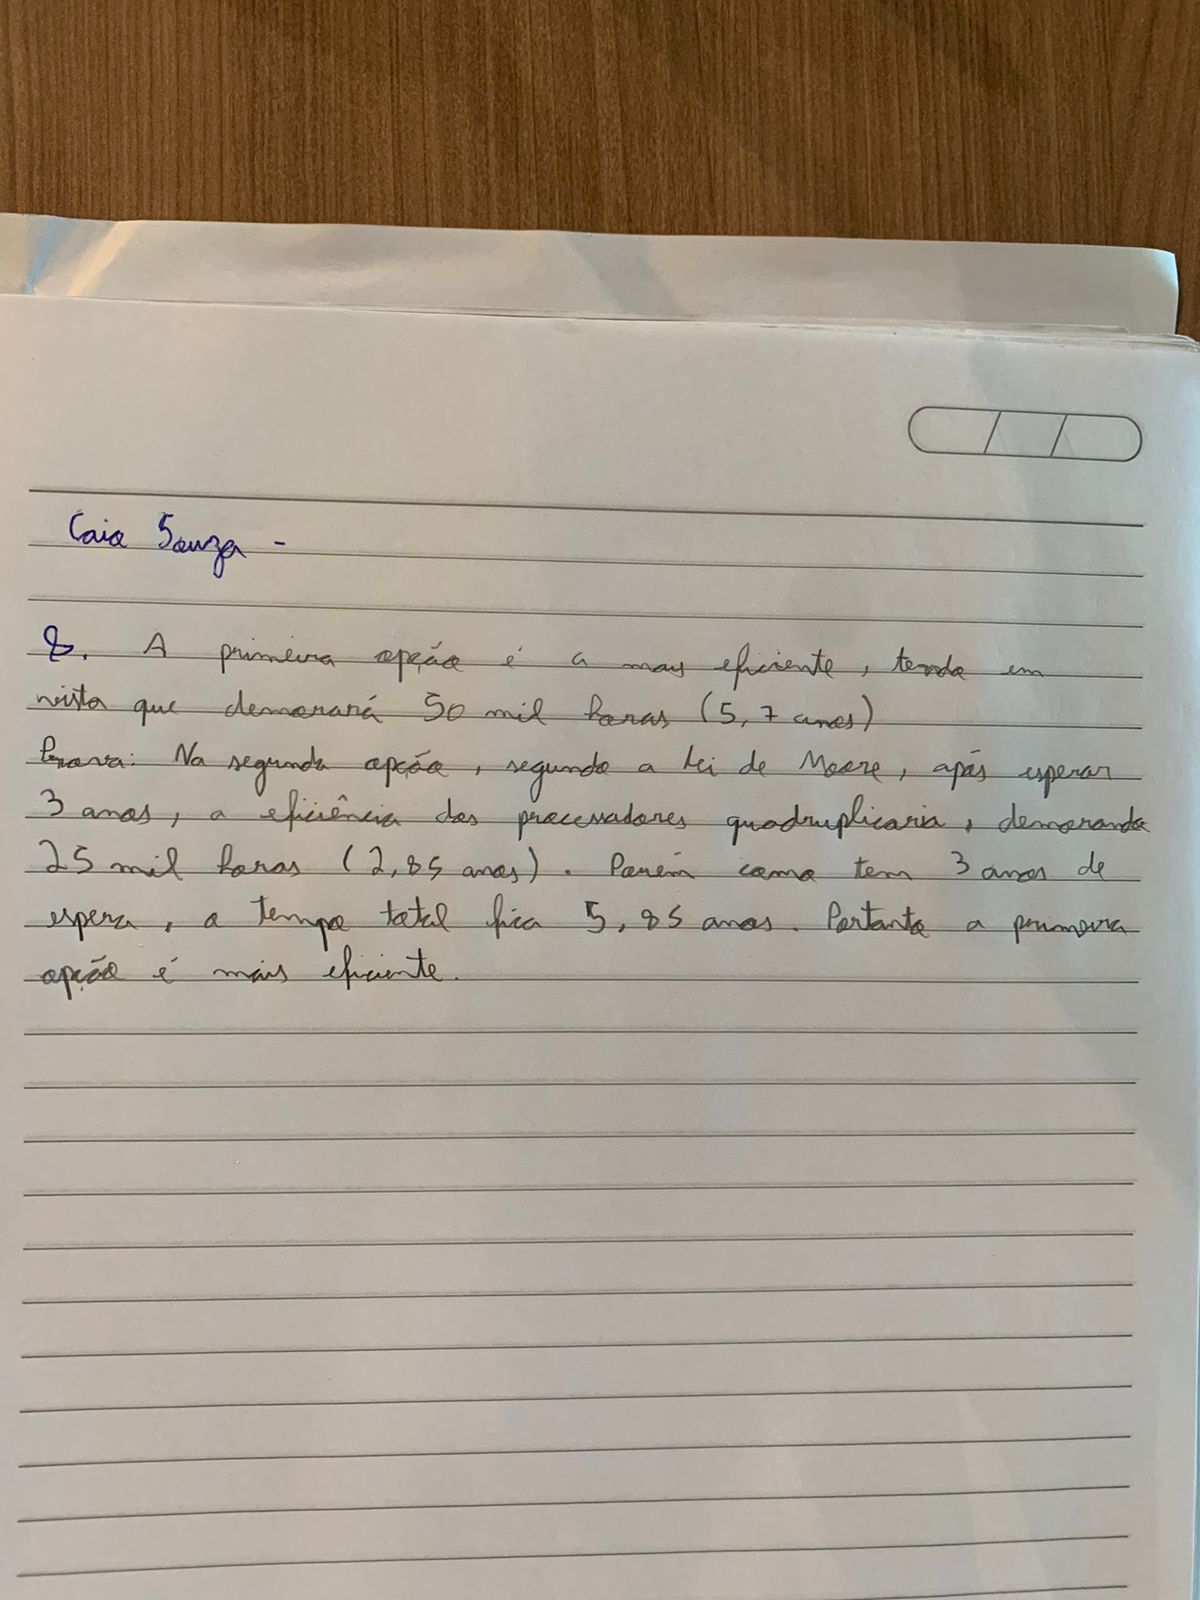 Caio Souza -
8. A primeira opção é a mais eficiente, tendo em
vista que demorará 50 mil horas (5,7 anos)
Prova: Na segunda opção, segundo a Lei de Moore, após esperar
3 anos, a eficiência dos processadores quadruplicaria, demorando
25 mil horas (2,85 anos). Porém como tem 3 anos de
espera, o tempo total fica 5,85 anos. Portanto a primeira
opção é mais eficiente.